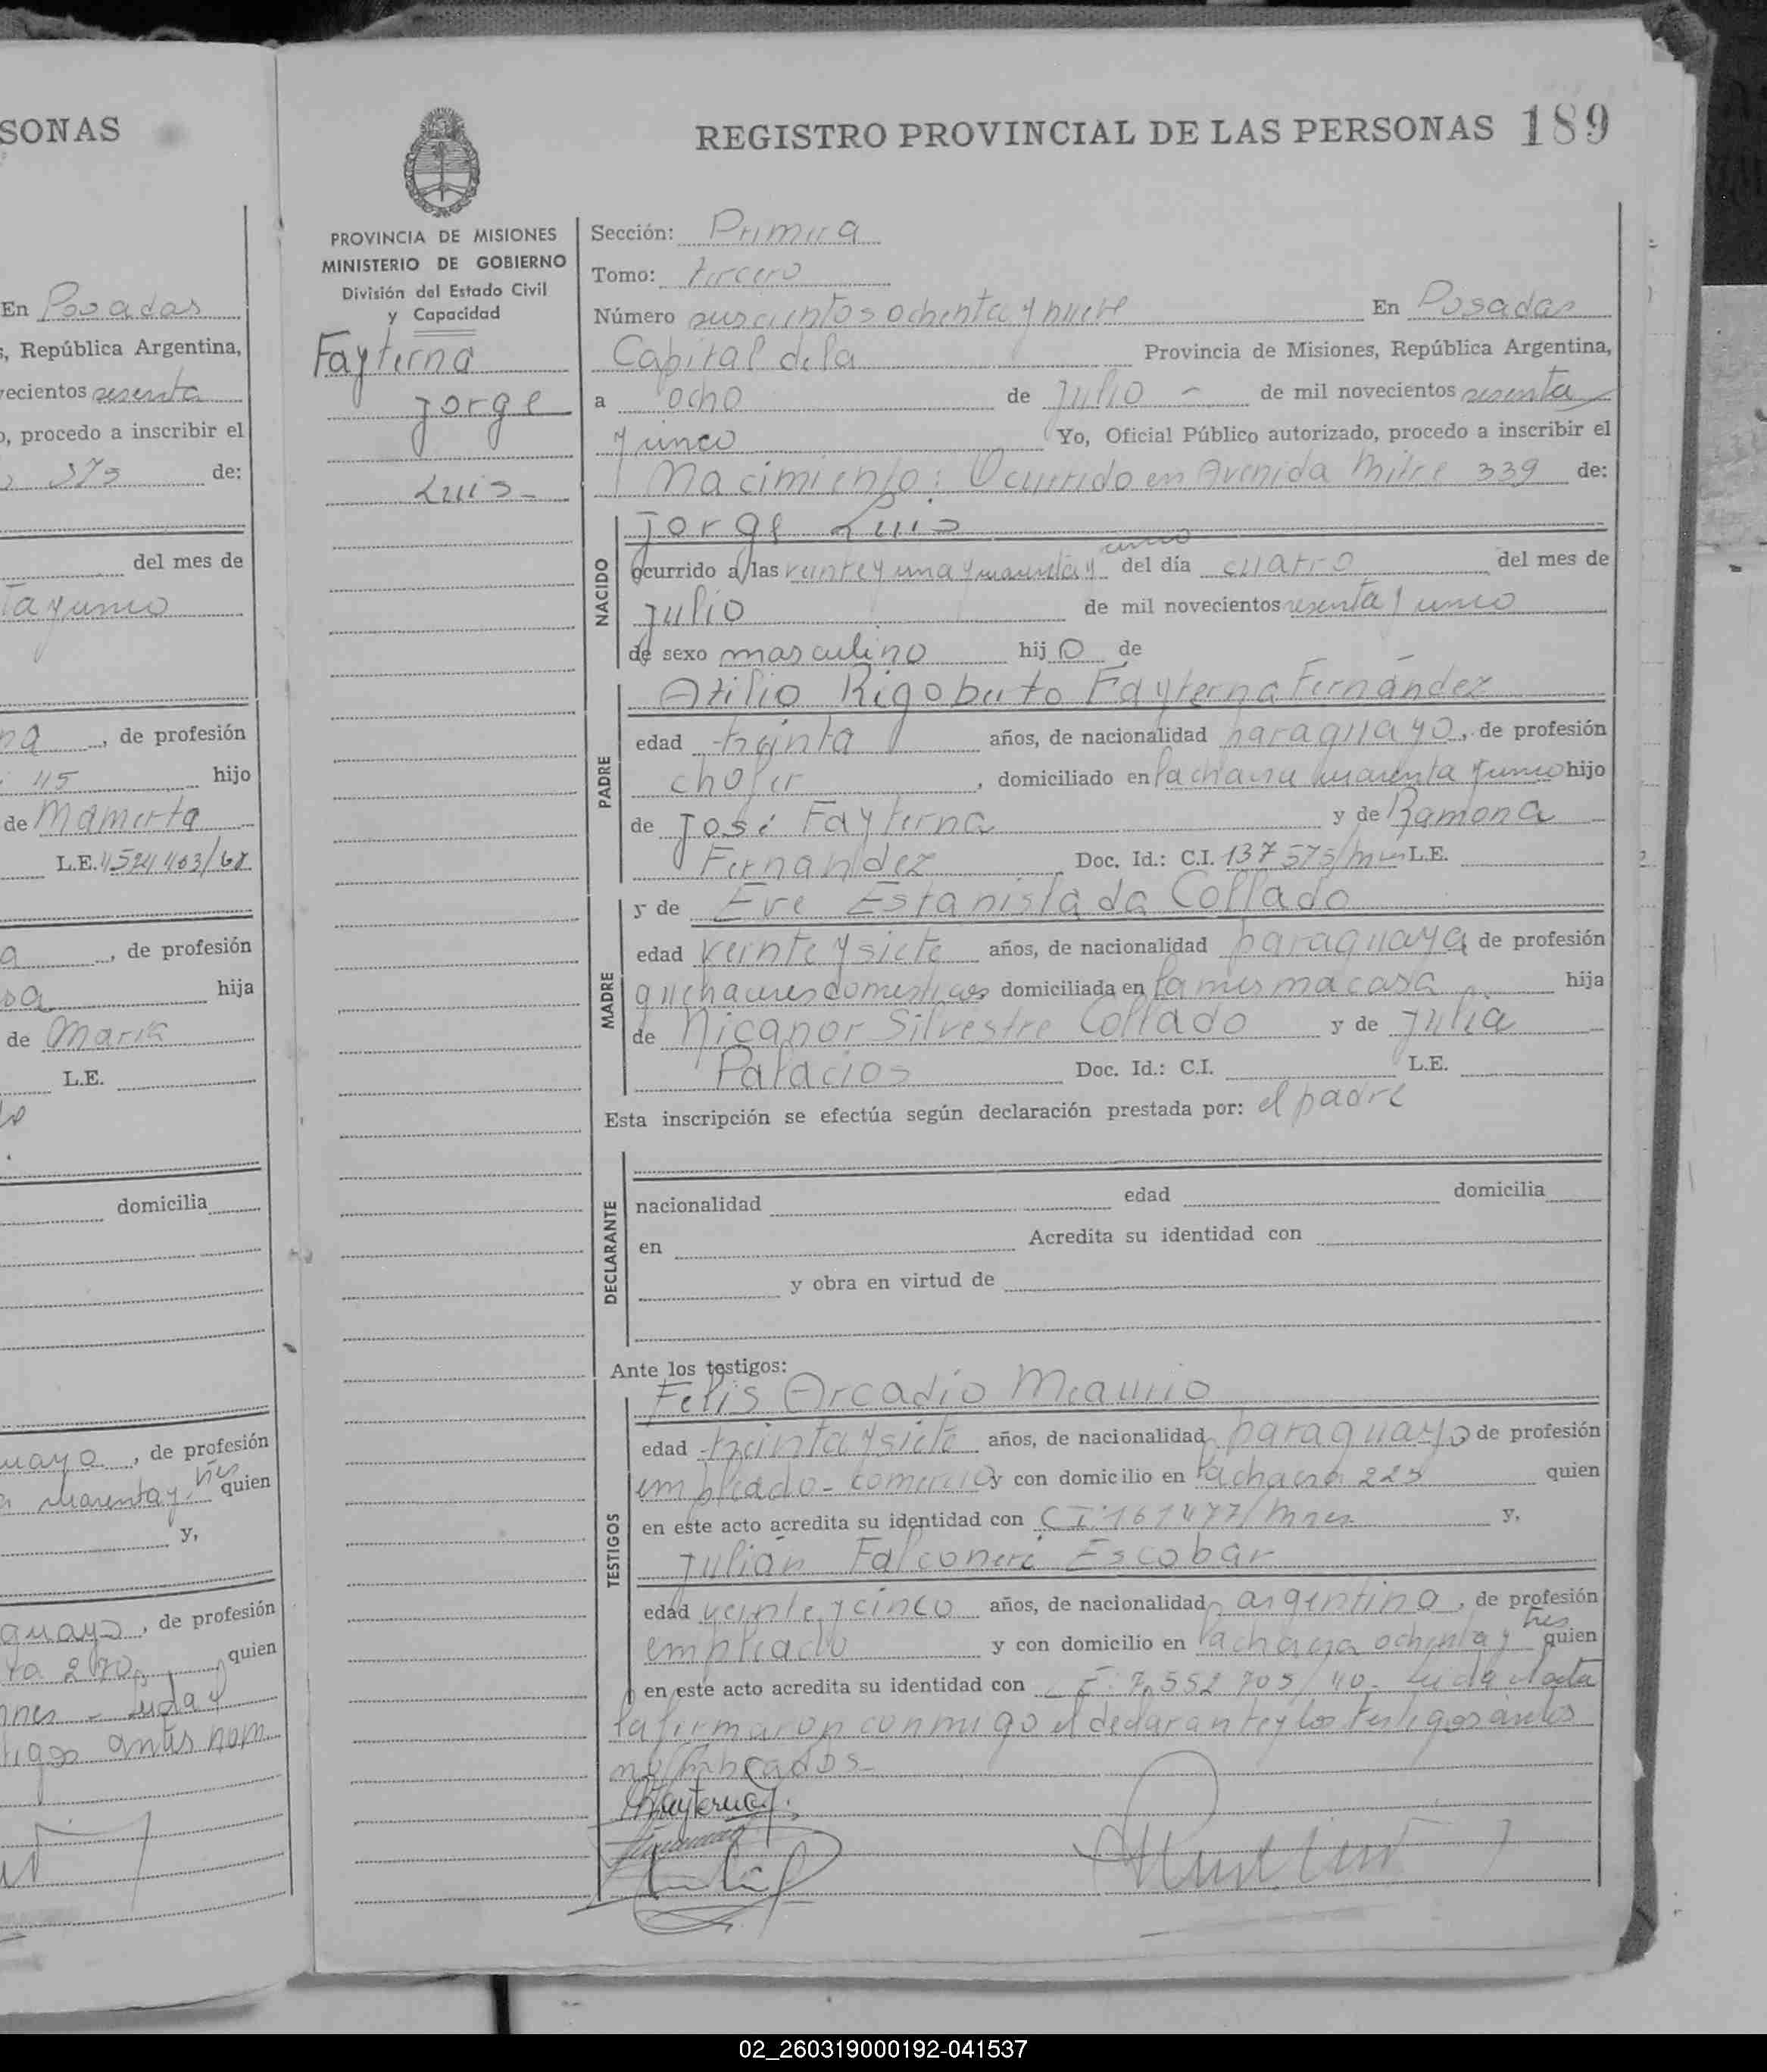 SONAS
En Posadas
, República Argentina,
vecientos sesenta
, procedo a inscribir el
373 de:
del mes de
ta y cinco
na, de profesión
115 hijo
de Mamerta
L.E.
a, de profesión
sa hija
de María
L.E.
domicilia
uayo, de profesión
cuarenta y tres quien
y,
guayo, de profesión
ta 270 quien
nes - Leida y
tigos antes nom
REGISTRO PROVINCIAL DE LAS PERSONAS 189
PROVINCIA DE MISIONES
MINISTERIO DE GOBIERNO
División del Estado Civil
y Capacidad
Fayterna
Jorge
Luis-
Sección: Primera
Tomo: tercero
Número seiscientos ochenta y nueve En Posadas
Capital de la Provincia de Misiones, República Argentina,
a ocho de Julio - de mil novecientos sesenta
y cinco Yo, Oficial Público autorizado, procedo a inscribir el
Nacimiento: Ocurrido en Avenida Mitre 339 de:
NACIDO
Jorge Luis
ocurrido a las veinte y una y cuarenta y cinco del día cuatro del mes de
Julio de mil novecientos sesenta y cinco
de sexo masculino hijo de
PADRE
Atilio Rigoberto Fayterna Fernández
edad treinta años, de nacionalidad paraguayo, de profesión
chofer, domiciliado en la chacra cuarenta y cinco hijo
de José Fayterna y de Ramona
Fernandez Doc. Id.: C.I. 137575/mnes L.E.
MADRE
y de Eve Estanislada Collado
edad veinte y siete años, de nacionalidad paraguaya de profesión
quehaceres domesticos domiciliada en la misma casa hija
de Nicanor Silvestre Collado y de Julia
Palacios Doc. Id.: C.I. L.E.
Esta inscripción se efectúa según declaración prestada por: el padre
DECLARANTE
nacionalidad edad domicilia
en Acredita su identidad con
y obra en virtud de
Ante los testigos:
TESTIGOS
Felis Arcadio
edad treinta y siete años, de nacionalidad paraguayo de profesión
empleado - comercio y con domicilio en la chacra 225 quien
en este acto acredita su identidad con C I. 161477/Mnes y,
Julián Falconeri Escobar
edad veinte y cinco años, de nacionalidad argentino, de profesión
empleado y con domicilio en la chacra ochenta y tres quien
en este acto acredita su identidad con L E: 7.552 705/40- Leida el acta
la firmaron conmigo el declarante y los testigos antes
nombrados-
02_260319000192-041537